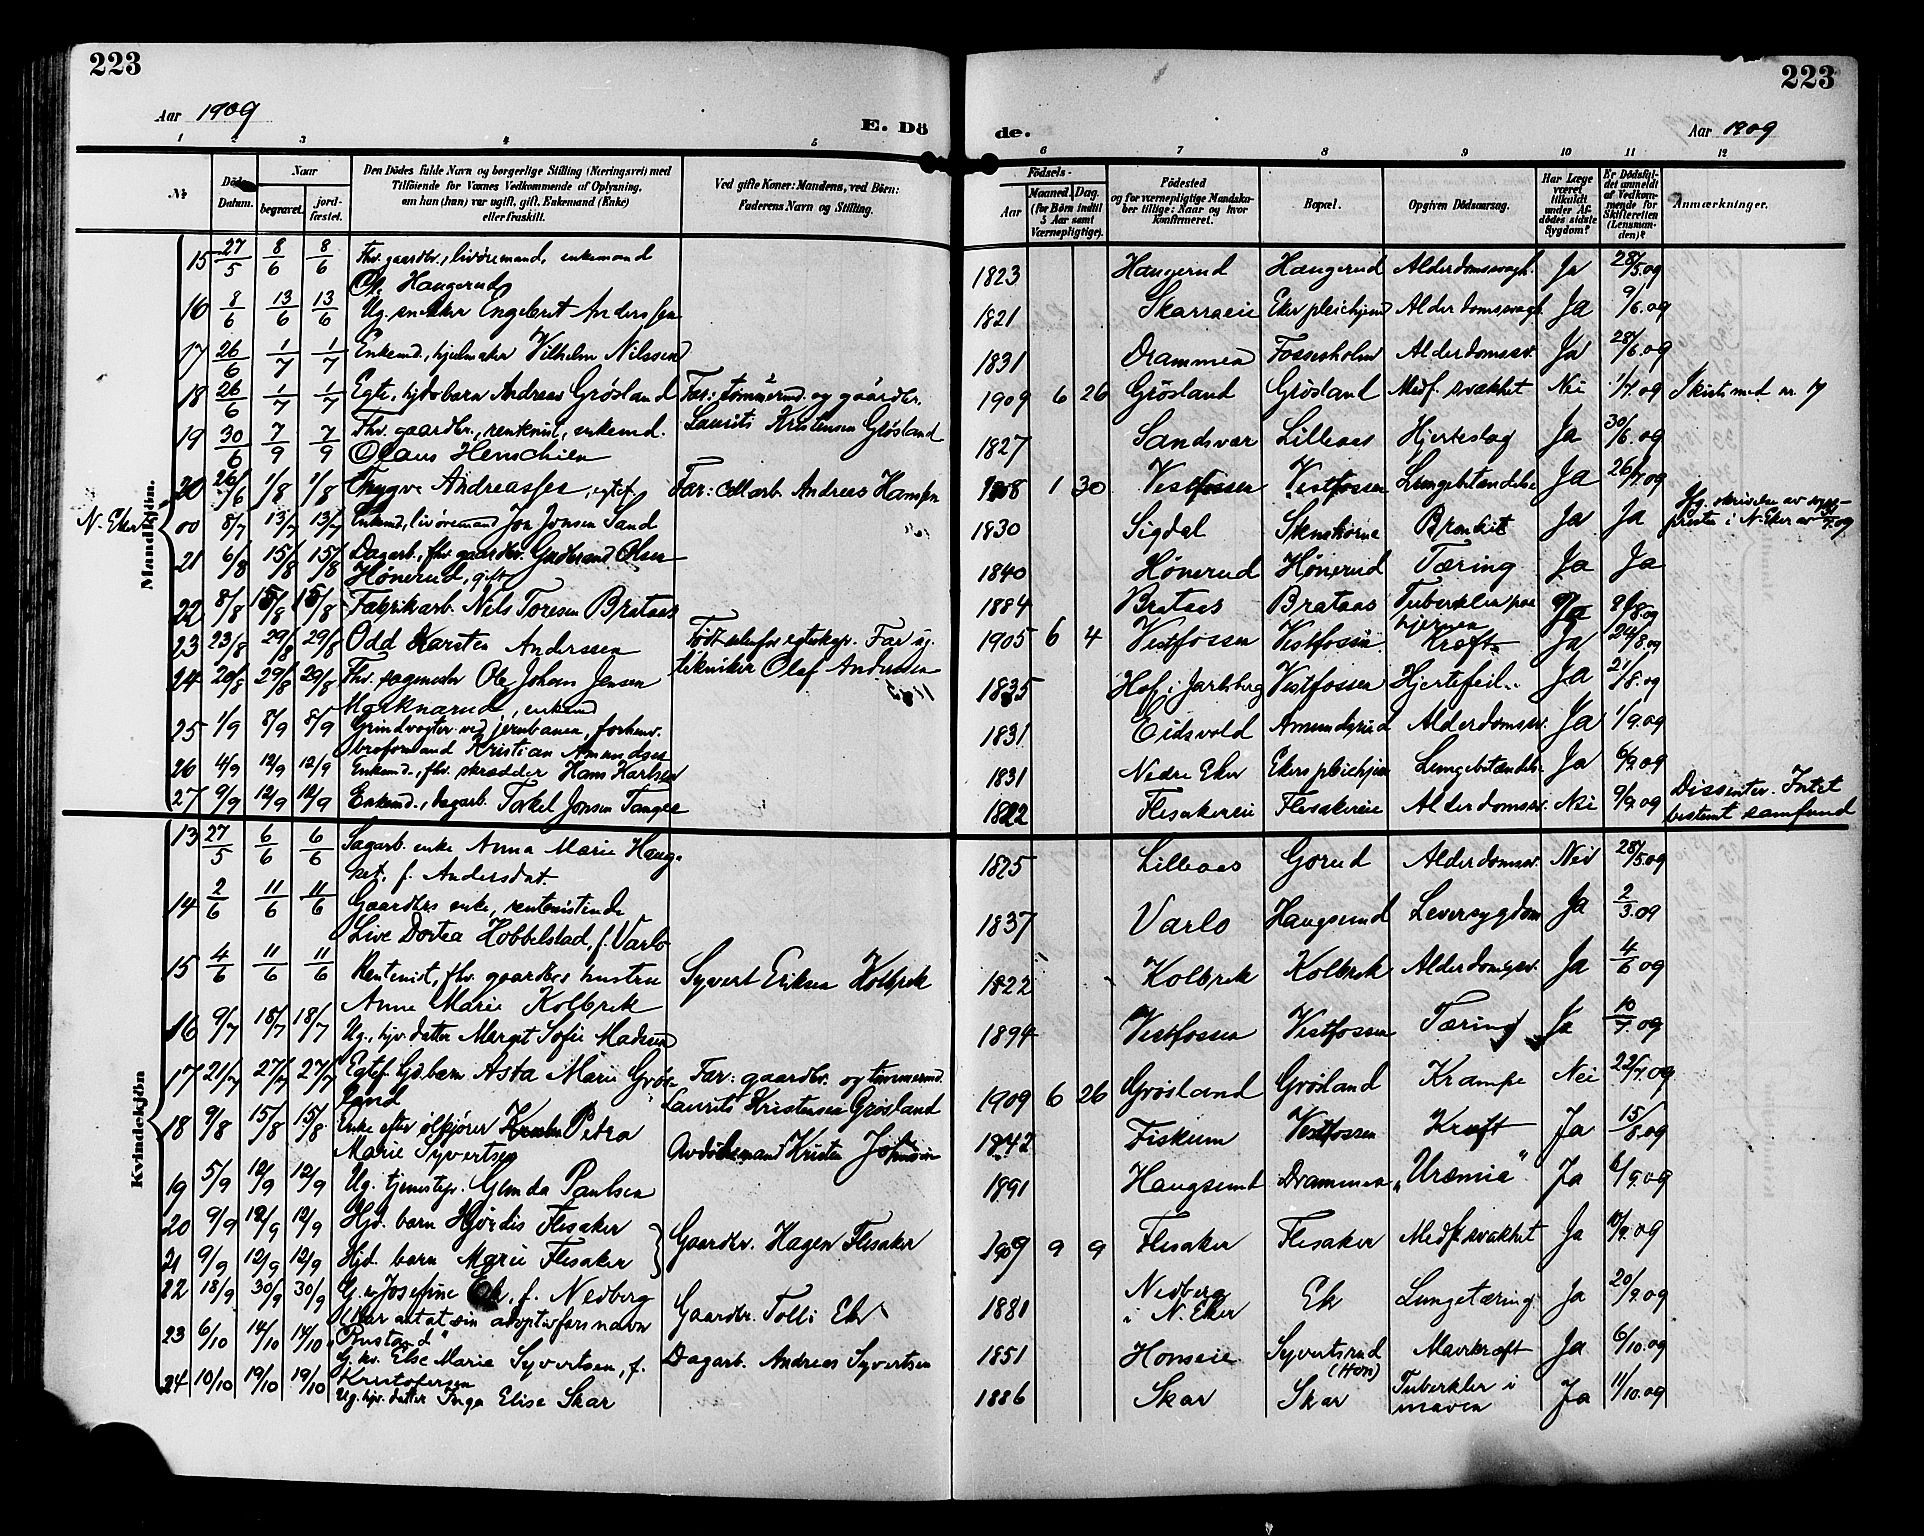 223
223
Aar 1909
E. Dö
de.
Aar 1909
1 2 3 4 5 6 7 8 9 10 11 12
№ Döds Datum. Naar begravet. jordfæstet. Den Dödes fulde Navn og borgerlige Stilling (Næringsvei) med Tilföiende for Voxnes Vedkommende af Oplysning, om hun (han) var ugift, gift, Enkemand (Enke) eller fraskilt. Ved gifte Koner: Mandens, ved Börn: Faderens Navn og Stilling. Födsels- Aar Maaned. Dag. (for Börn indtil 5 Aar samt Værnepligtige). Födested og for værnepligtige Mandskaber tillige: Naar og hvor konfirmeret. Bopæl. Opgiven Dödsaarsag. Har Læge været tilkaldt under Afdödes sidste Sygdom? Er Dödsfaldet anmeldt af Vedkommende for Skifteretten (Lensmanden)? Anmærkninger.
Mandkjön.
15 27/5 8/6 8/6 Fhv. gaardbr., livøremand, enkemand 1823 Haugerud Haugerud Alderdomssvagh. Ja 28/5.09
Ole Haugerud
16 8/6 13/6 13/6 Ug. snekker Engebret Anderssen 1821 Skarraeie Eker pleiehjem Alderdomssvagh. Ja 9/6.09
17 26/6 1/7 1/7 Enkemd., hjulmaker Vilhelm Nilssen 1831 Drammen Fossesholm Alderdomssv. Ja 28/6.09
18 26/6 1/7 1/7 Egtef. hjdøbt barn Andreas Grøsland Far: tømmermd. og gaardbr. 1909 6 26 Grøsland Grøsland Medf. svakhet Nei 1/7.09 Skiftsmed nr. 17
Laurits Kristensen Grøsland
19 30/6 7/9 7/9 Fhv. gaardbr., rentenist, enkemd. 1827 Sandsvær Lilleaas Hjerteslag Ja 30/6.09
Olaus Henschien
20 26/6 1/8 1/8 Trygve Andreassen, egtef. Far: Marb. Andreas Hansen 1908 1 30 Vestfossen Vestfossen Lungebetændelse Ja 26/7.09
N. Eker 00 8/7 13/7 13/7 Enkemd., livøremand Jon Jonsen Sand 1830 Sigdal Skinstorne Bronkit Ja Ja Iflg. skrivelse av sognepresten i N. Eker av 7.09
21 6/8 15/8 15/8 Dagarb., fhv. gaardbr. Gudbrand Olsen 1840 Hønerud Hønerud Tæring Ja Ja
Hønerud, gift
22 8/8 15/8 15/8 Fabrikarb. Nils Toresen Brataas 1884 Brataas Brataas Tuberkler paa hjernen Ja 8/8.09
23 23/8 29/8 29/8 Odd Karsten Anderssen Født utenfor egteskap. Far ug. 1905 6 4 Vestfossen Vestfossen Kræft Ja 24/8.09
tekniker Olaf Andersen
24 20/8 29/8 29/8 Fhv. sagmester Ole Johan Jensen 1835 Hof i Jarlsberg Vestfossen Hjertefeil Ja 21/8.09
Mørknærud, enkemd
25 1/9 8/9 8/9 Grindvogter ved jernbanen, forhenv. 1831 Eidsvold Amundsrud Alderdomssv. Ja 1/9.09
broformand Kristian Amundsen
26 4/9 12/9 12/9 Enkemd., fhv. skrædder Hans Karlsen 1831 Nedre Eker Ekers pleiehjem Lungebetændels. Ja 6/9.09
27 9/9 12/9 12/9 Enkemd., dagarb. Torkel Jonsen Tangen 1822 Flesakereie Flesakereie Alderdomssv. Nei 9/9.09 Dissenter. Intet bestemt samfund
Kvindekjön
13 27/5 6/6 6/6 Sagarb. enke Anna Marie Haug- 1825 Lilleaas Gorud Alderdomssv. Nei 28/5.09
set, f. Andersdat.
14 2/6 11/6 11/6 Gaardbrs enke, rentenistinde 1837 Varlo Haugsund Leversygdom Ja 2/3.09
Live Dortea Hobbelstad, f. Varlo
15 4/6 11/6 11/6 Rentenist, fhv. gaardbrs hustru Syvert Eriksen Kolbrek 1822 Kolbrek Kolbrek Alderdomssv. Ja 4/6 09
Anne Marie Kolbrek
16 9/7 18/7 18/7 Ug., hjv. datter Margit Sofie Madsen 1894 Vestfossen Vestfossen Tæring Ja 10/7.09
17 21/7 27/7 27/7 Egtef. hjd. barn Asta Marie Grøs- Far: gaardbr. og tømmermd. 1909 6 26 Grøsland Grøsland Krampe Nei 22/7.09
land Laurits Kristensen Grøsland
18 9/8 15/8 15/8 Enke efter ølkjører Petra 1842 Fiskum Vestfossen Kræft Ja 15/8.09
Marie Syvertsen Avdødemand Kristen Johnsen
19 5/9 12/9 12/9 Ug. tjenestep. Gunda Paulsen 1891 Haugsund Drammen „Uræmie" Ja 6/9.09
20 9/9 12/9 12/9 Hjd. barn Hjørdis Flesaker Gaardbr. Hagen Flesaker 1909 9 9 Flesaker Flesaker Medf. svakhet Ja 10/9.09
21 9/9 12/9 12/9 Hjd. barn Marie Flesaker
22 18/9 30/9 30/9 G. kv. Josefine Ek, f. Nedberg Gaardbr. Tolli Ek 1881 Nedberg i N. Eker Ek Lungetæring Ja 20/9.09
(Har antat sin adoptivfars navn
„Rustand"
23 6/10 14/10 14/10 G. kv. Else Marie Syvertsen, f. Dagarb. Andreas Syvertsen 1851 Honseie Syvertsrud (Hon) Mavekræft Ja 6/10.09
Kristofersen
24 10/10 19/10 19/10 Ug. hjv. datter Inga Elise Skar 1886 Skar Skar Tuberkler i maven Ja 11/10.09